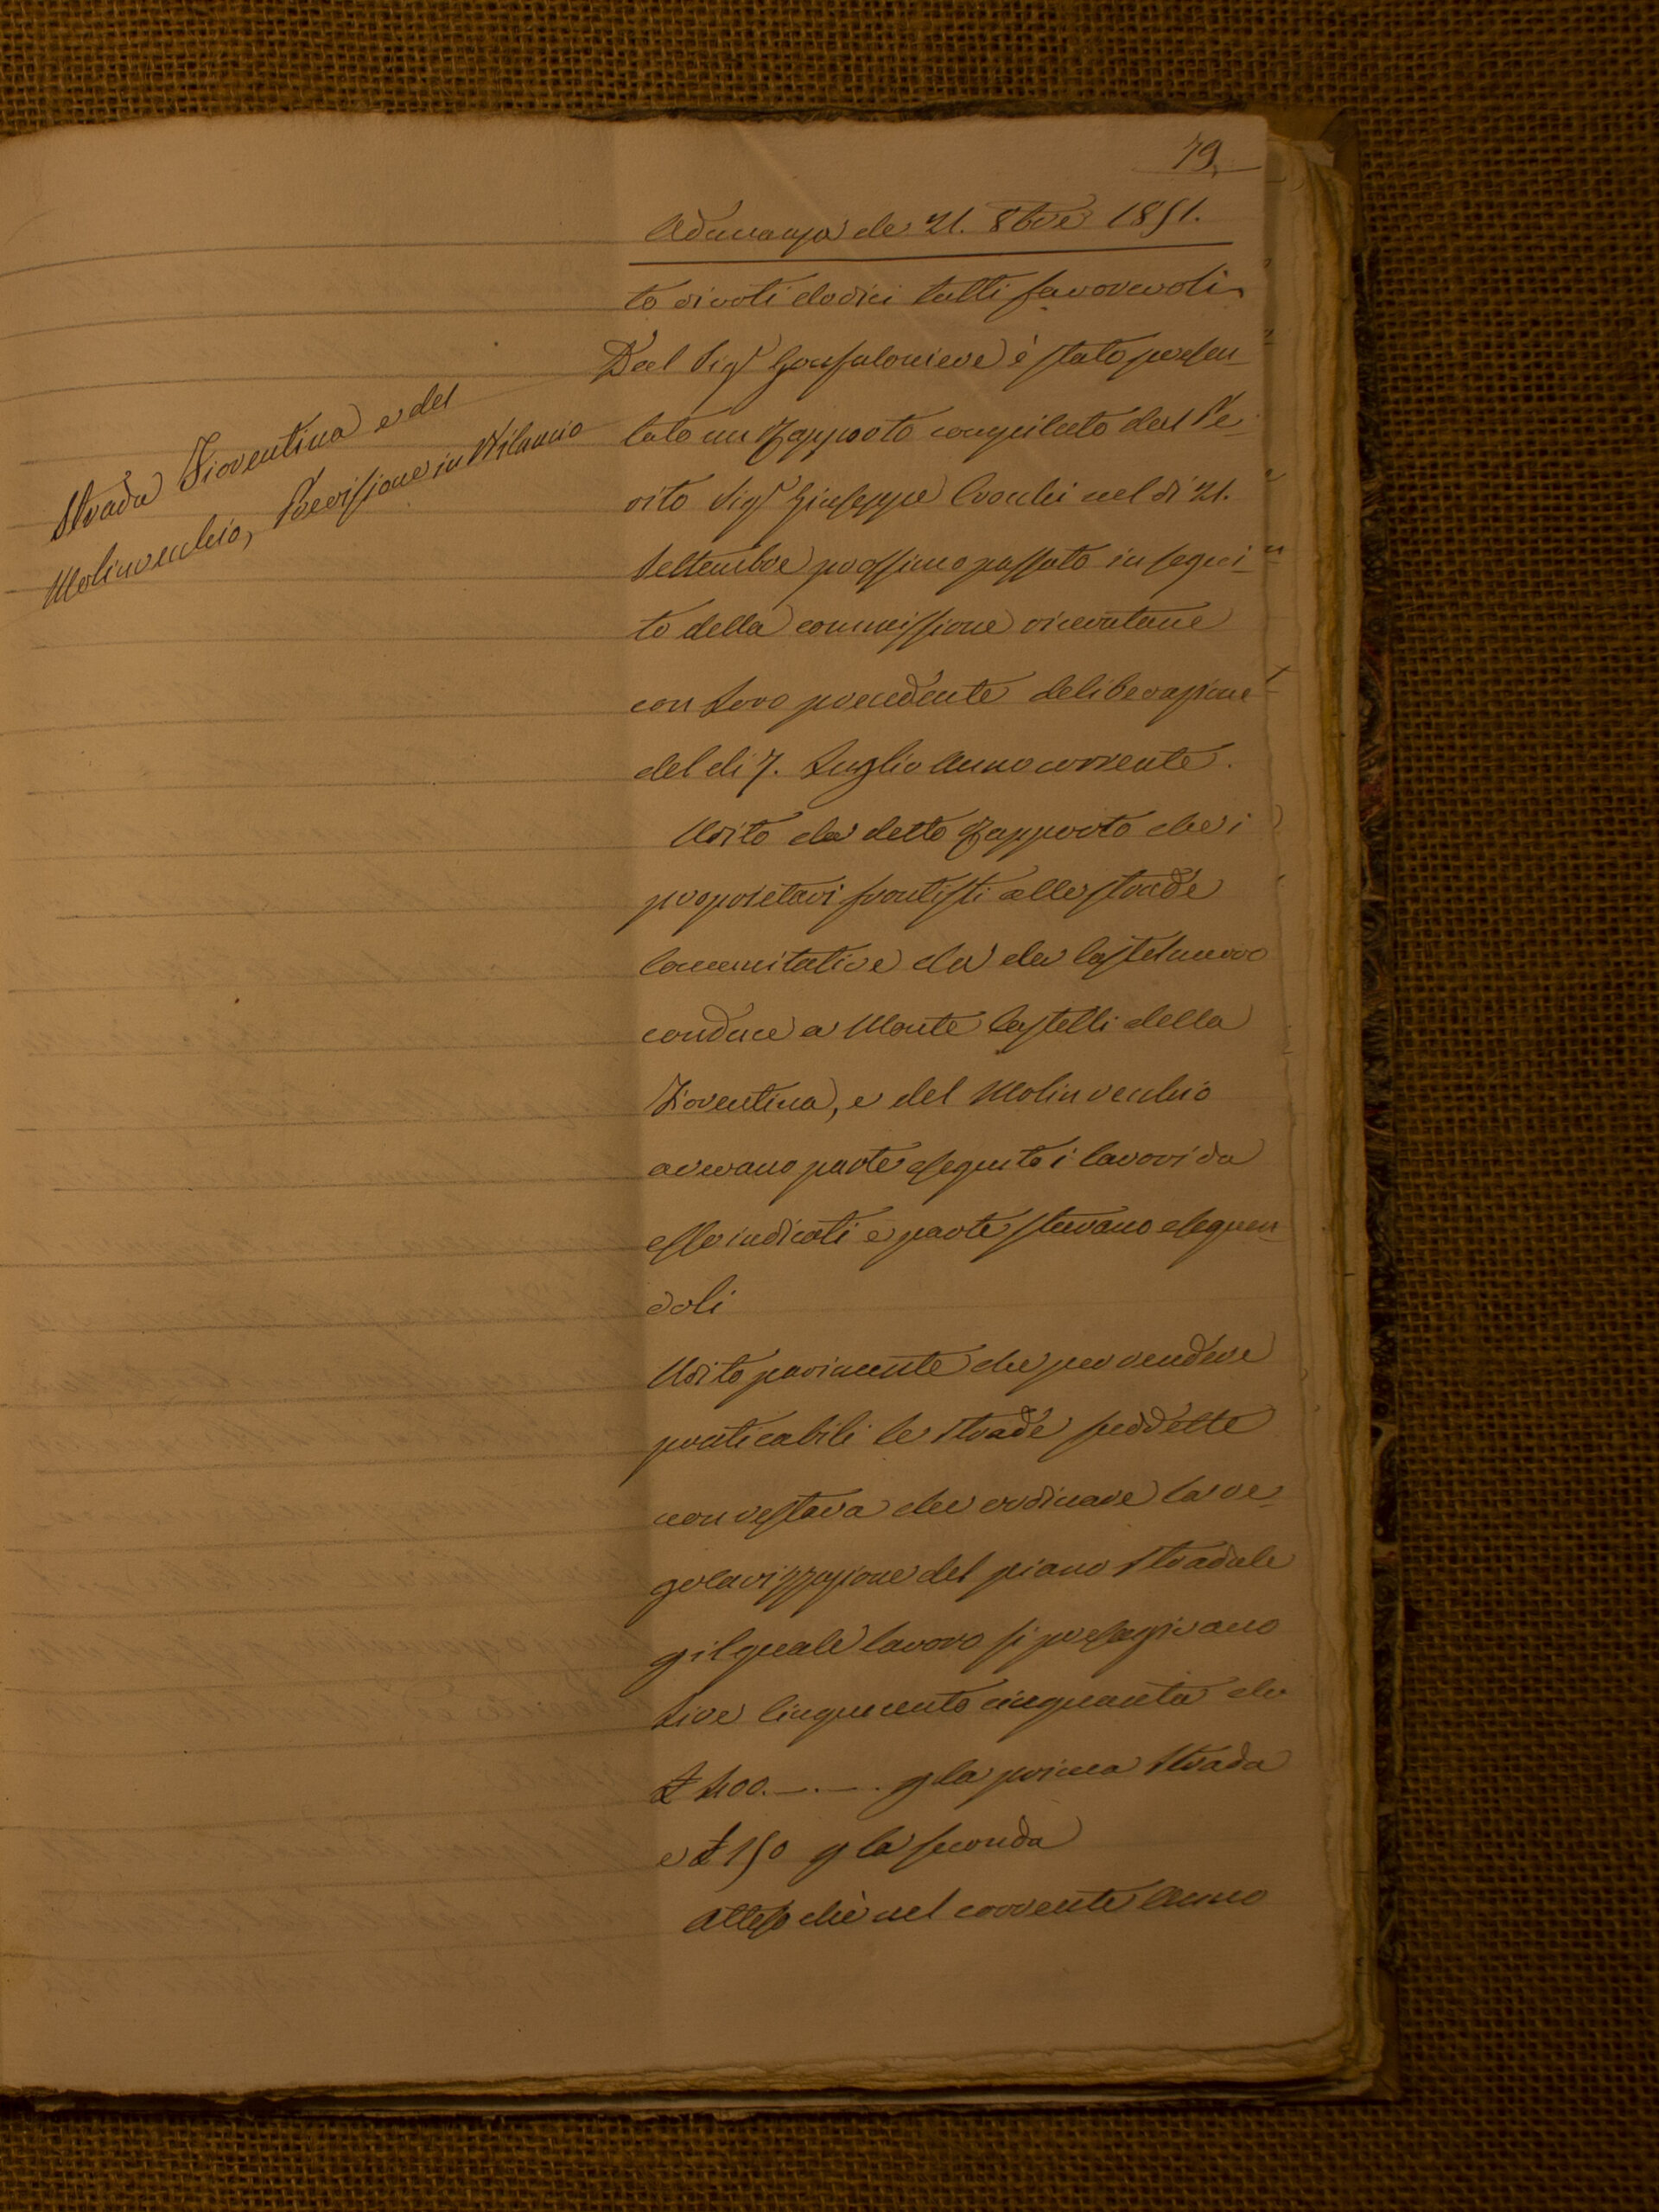 79.
Adunanza de 21. 8bre 1851.
to di voti dodici tutti favorevoli
Strada Fiorentina e del
Molinvecchio, Previsione in Bilancio
Dal Sigr Gonfaloniere è stato presen-
tato un Rapporto compilato dal Pe-
rito Sigr Giuseppe Cionchi nel dì 21.
Settembre prossimo passato in segui-
to della commissione ricevutane
con Loro precedente deliberazione
del di 7. Luglio Anno corrente.
Udito da detto Rapporto che i
proprietari frontisti alle strade
Comunitative che da Castelnuovo
conduce a Monte Castelli della
Fiorentina, e del Molin vecchio
avevano parte eseguito i lavori da
esso indicati e parte stavano eseguen
doli
Udito parimente che per rendere
praticabili le Strade suddette
non restava che ordinare la re-
golarizzazione del piano Stradale
p il quale lavoro si presagivano
Lire Cinquecento cinquanta cioè
£ 400. _ . _ . p la prima Strada
e £ 150 p la seconda
Atteso che nel corrente Anno